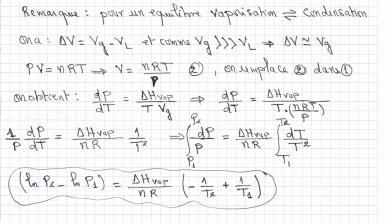 Remarque : pour un equilibre vaporisation ⇌ Condensation
on a : ΔV = Vg - VL et comme Vg >>> VL ⇒ ΔV ≃ Vg
PV = nRT ⇒ V = nRT/P ② , on remplace ② dans ①
on obtient : dP/dT = ΔHvap/(T Vg) ⇒ dP/dT = ΔHvap/(T.(nRT/P))
1/P dP/dT = ΔHvap/nR 1/T² ⇒ ∫_{P1}^{P2} dP/P = ΔHvap/nR ∫_{T1}^{T2} dT/T²
(ln P2 - ln P1) = ΔHvap/nR (-1/T2 + 1/T1)